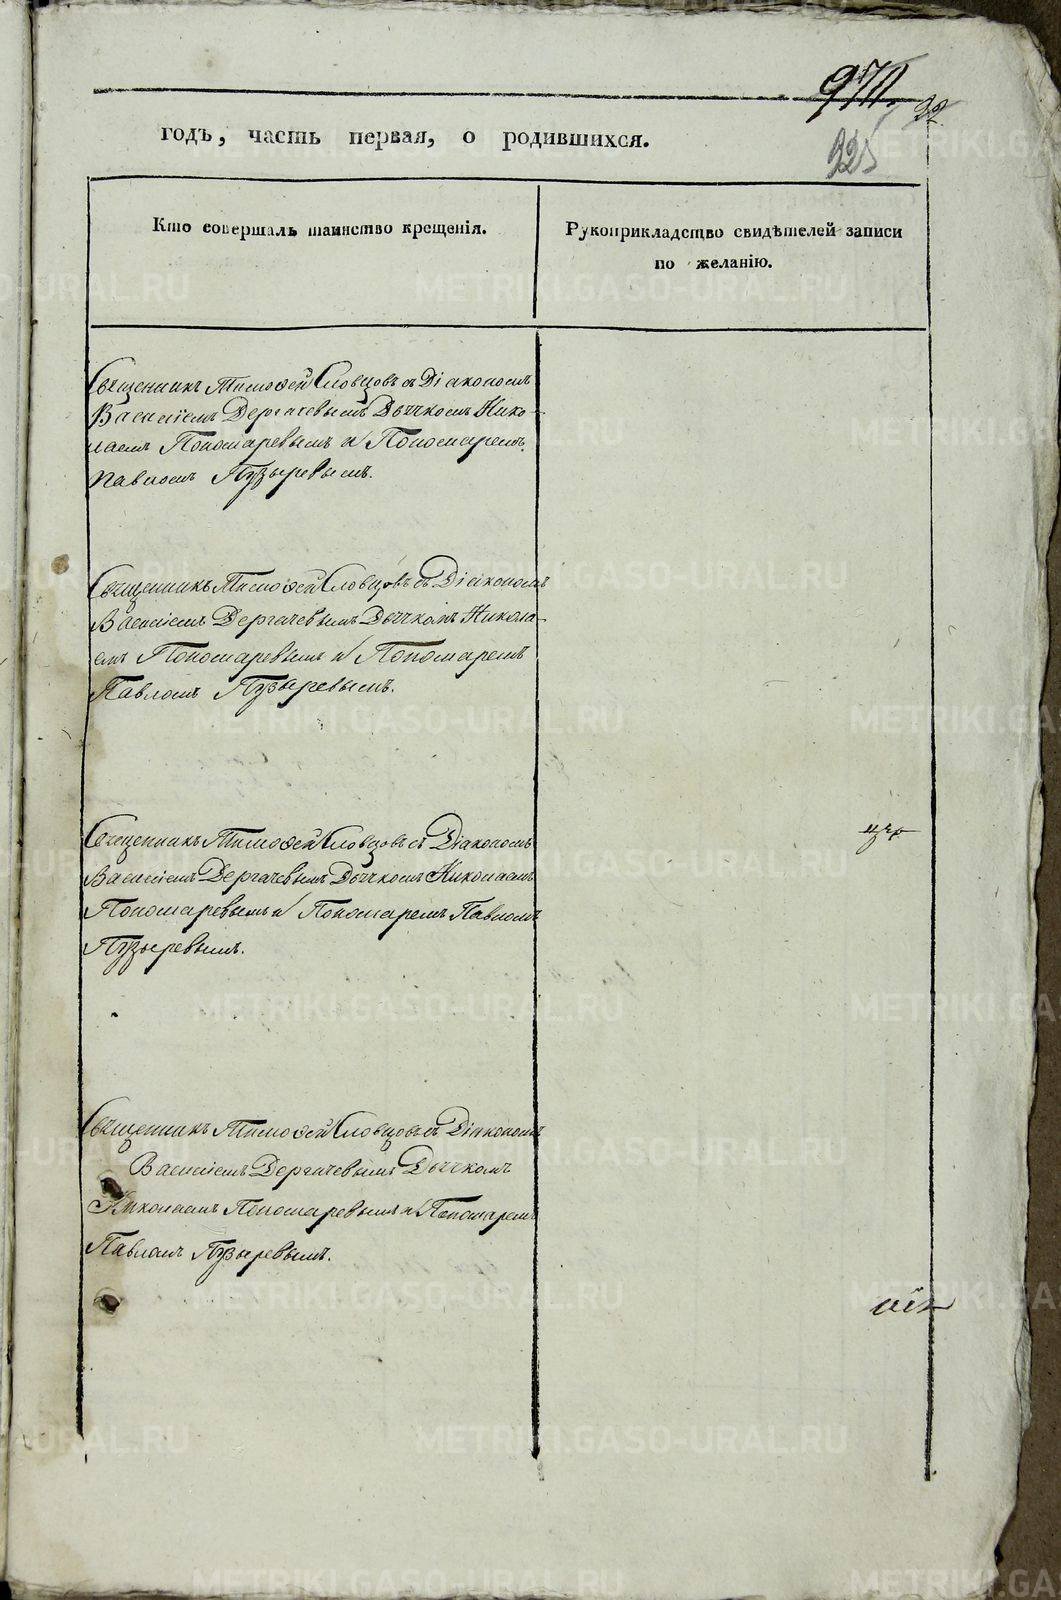 970.
22
225
годъ, часть первая, о родившихся.
Кто совершалъ таинство крещенія.
Рукоприкладство свидѣтелей записи
по желанію.
Священникъ Тимоѳей Словцовъ съ Діакономъ
Василіемъ Дергачевымъ Дьячкомъ Нико-
лаемъ Пономаревымъ и Пономаремъ
Павломъ Пузыревымъ.
Священникъ Тимоѳей Словцовъ съ Діакономъ
Василіемъ Дергачевымъ Дьячкомъ Никола-
емъ Пономаревымъ и Пономаремъ
Павломъ Пузыревымъ.
Священникъ Тимоѳей Словцовъ съ Діакономъ
Василіемъ Дергачевымъ Дьячкомъ Николаемъ
Пономаревымъ и Пономаремъ Павломъ
Пузыревымъ.
Священникъ Тимоѳей Словцовъ съ Діакономъ
Василіемъ Дергачевымъ Дьячкомъ
Николаемъ Пономаревымъ и Пономаремъ
Павломъ Пузыревымъ.
METRIKI.GASO-URAL.RU